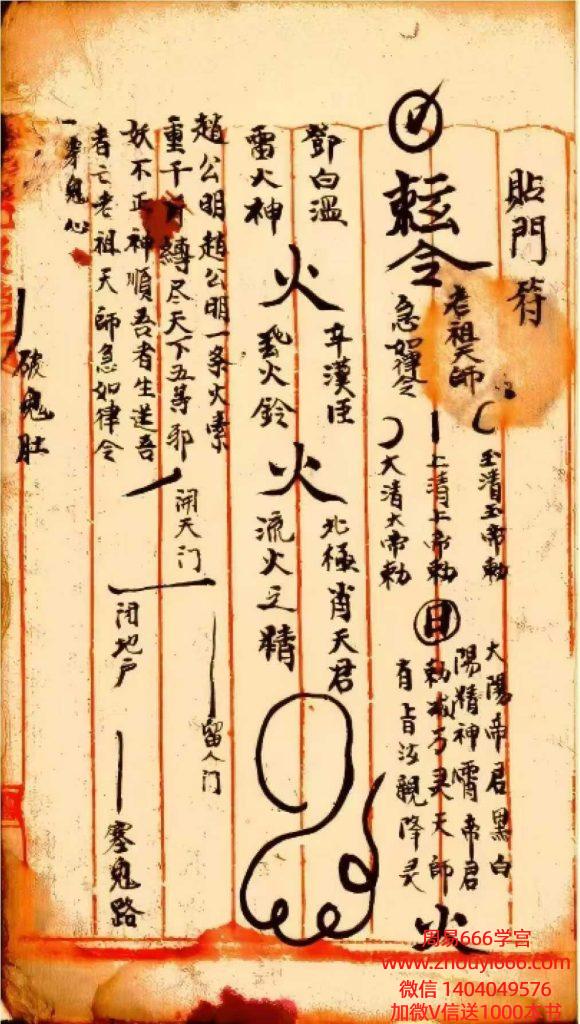 貼門符
老祖天師
急如律令
玉清玉帝勅
上清上帝勅
大清大帝勅
日
太陽帝君黑白
陽精神霄帝君
勅滅万灵天師
有旨法親降灵
火
鄧白温
雷火神
火
辛漢臣
飛火鈴
火
北極肖天君
流火之精
趙公明趙公明一条火索
重千斤縛尽天下五等邪
妖不正神順吾者生逆吾
者亡老祖天師急如律令
開天门
闭地户
留人门
塞鬼路
一穿鬼心
破鬼肚
周易666学宫
www.zhouyi666.com
微信 1404049576
加微V信送1000本书